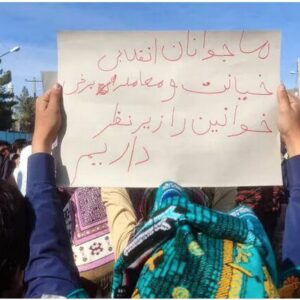 ما جوانان انقلابی
خیانت و معامله‌ی برخی
خوانین را زیر نظر
داریم